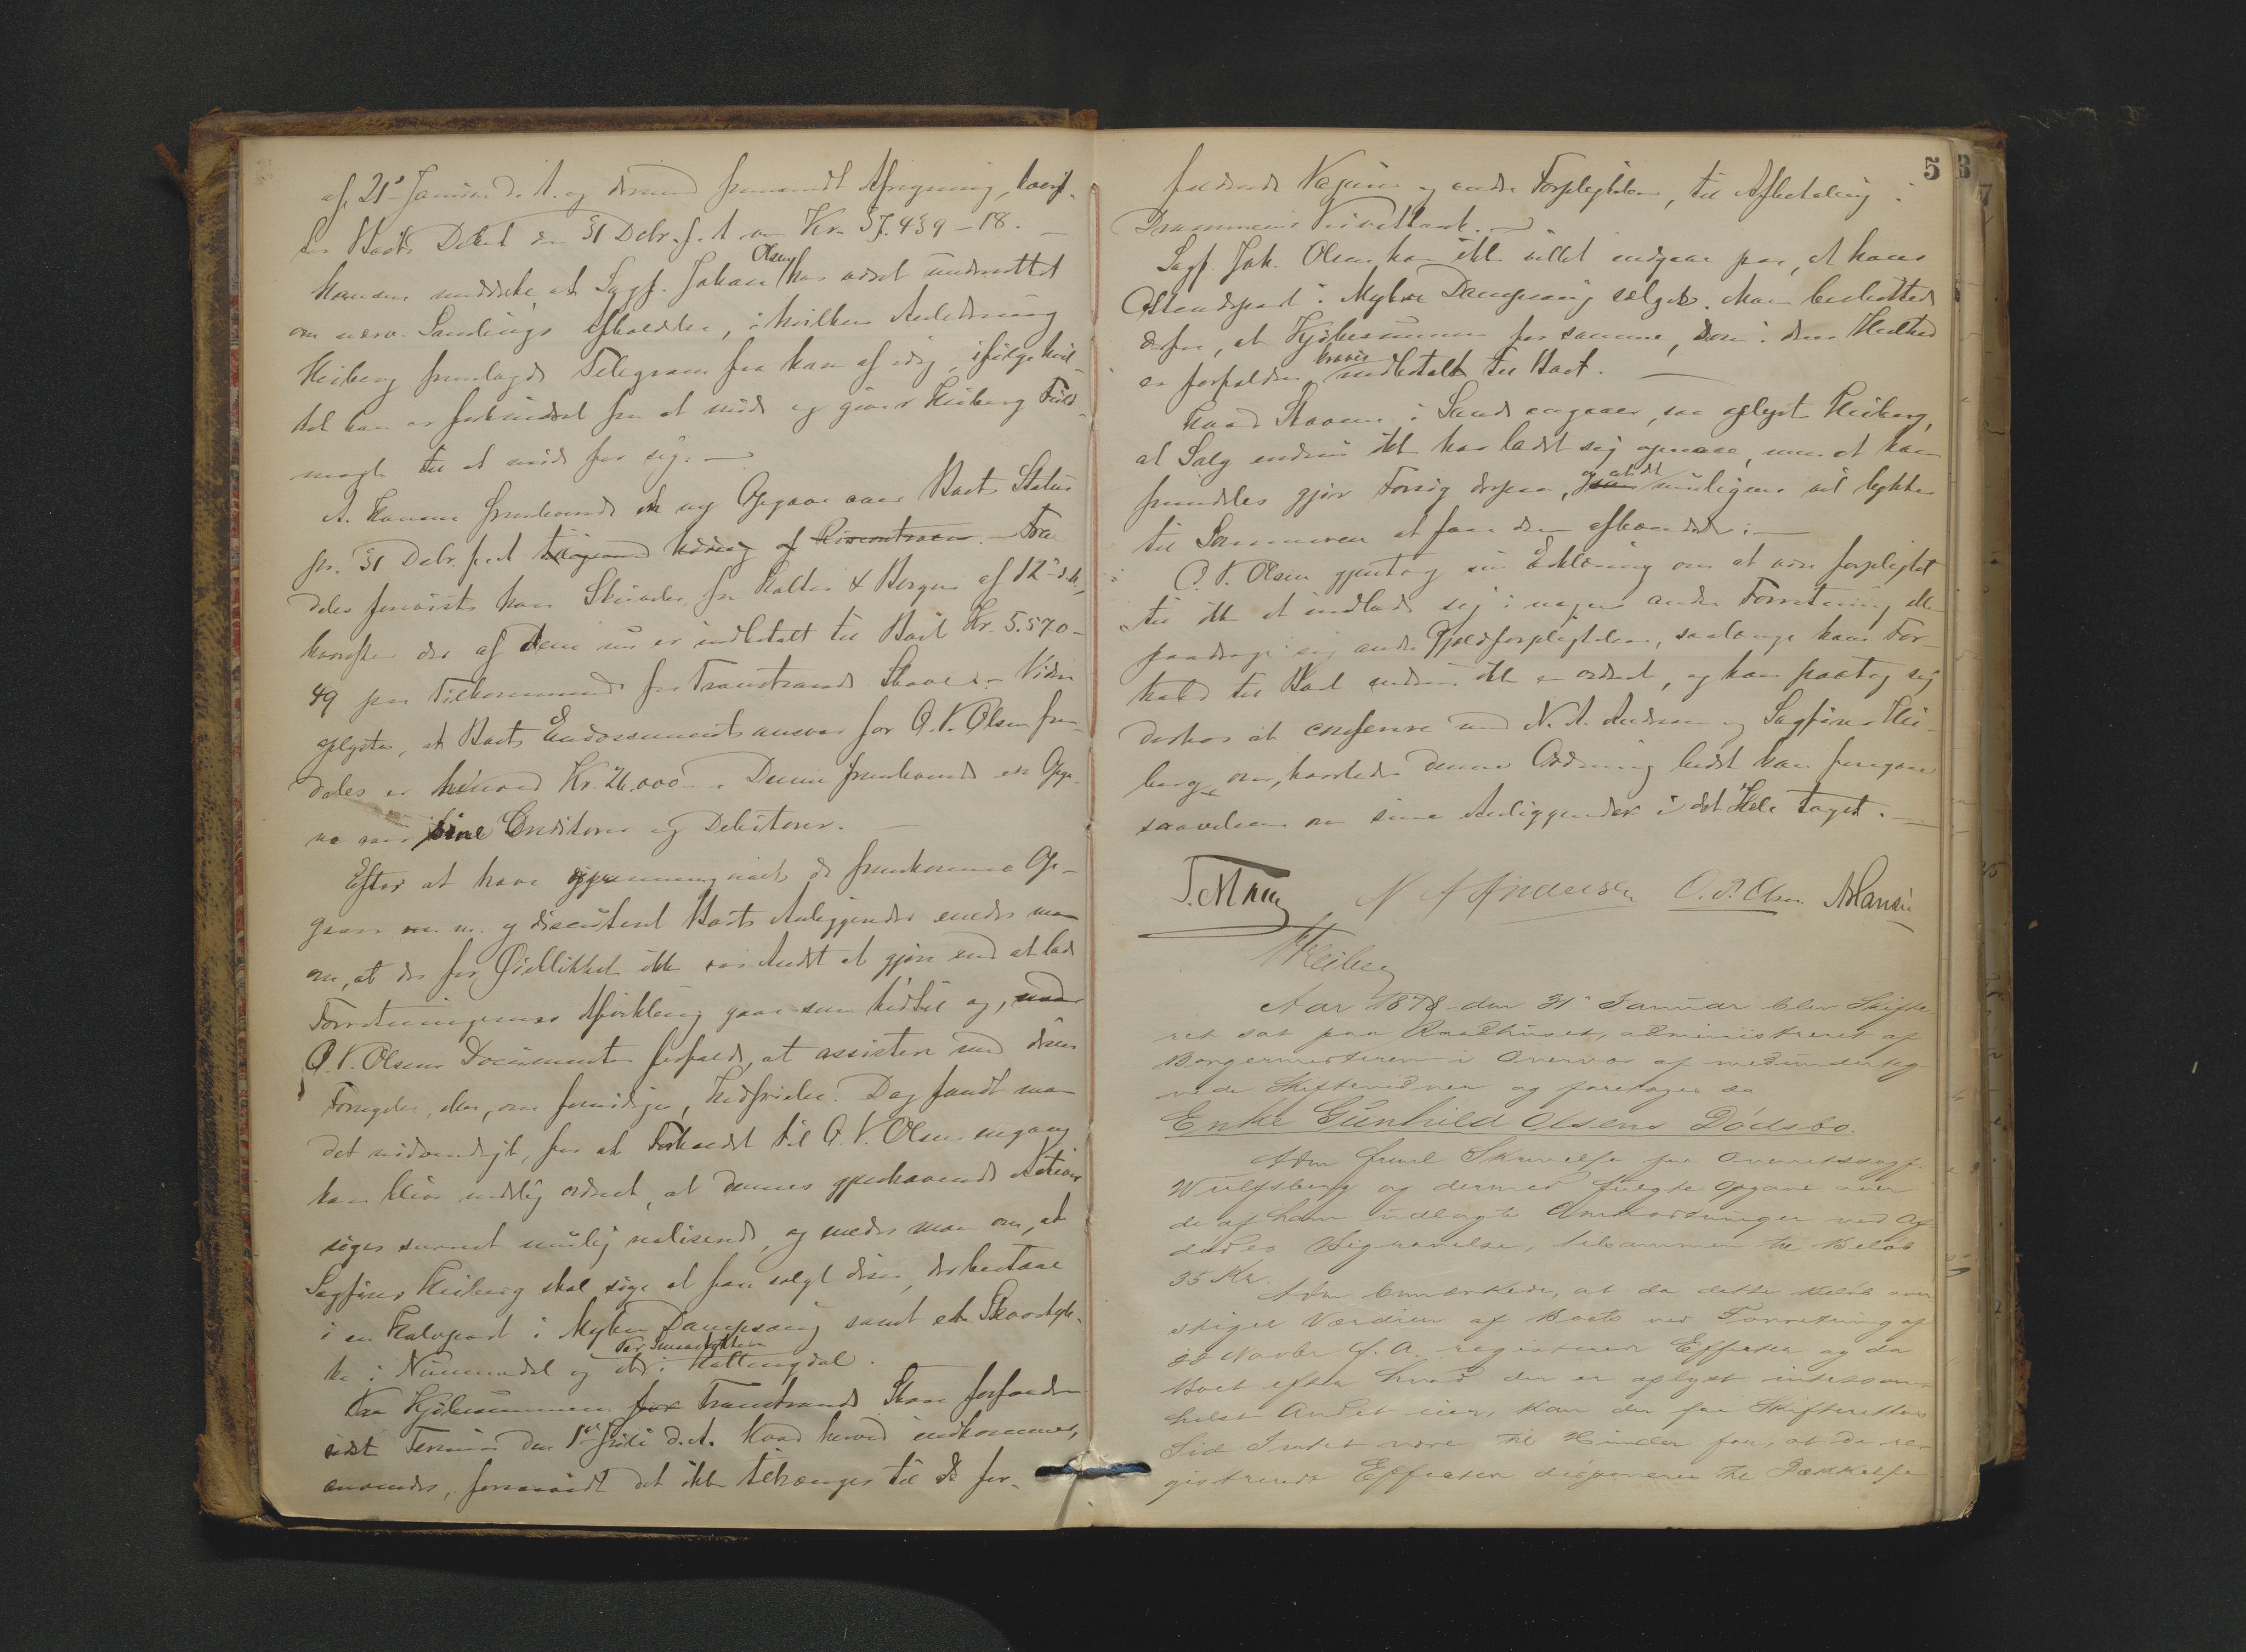 af 21de Januar d. A. og dermed fremsendt Afregning, hvoref-
ter Boets Debet den 31 Decbr. f. A. var Kr. 37.439–18. –
Hansen meddelte, at Sagf. Johan Olsen har været underrettet
om nærv. Samlings Afholdelse, i hvilken Anledning
Heiberg fremlagde Telegram fra ham af idag, ifølge hvil-
ket han er forhindret fra at møde og giver Heiberg Fuld-
magt til at møde for sig. —
A. Hansen fremlagde en ny Opgave over Boets Status
pr. 31 Decbr. f. A. af Riscontroen. – Frem-
deles foreviste han Skrivelse fra Kolter & Borgen af 12te d. M.,
hvorefter der af dem nu er indbetalt til Boet Kr. 5.570–
49 paa Tilkommende for Tranestrands Skove. – Videre
oplystes, at Boets Endossementsansvar for O. V. Olsen frem-
deles er Kr. 26.000–. Denne fremlagde en Opga-
ve over sine Creditorer og Debitorer.
Efter at have gjennemgaaet de fremkomne Op-
gaver m. m. og discuteret Boets Anliggender enedes man
om, at der for Øieblikket ikke var Andet at gjøre end at lade
Forretningernes Afvikling gaae som hidtil og, naar
O. V. Olsens Documenter forfalde, at assistere med disses
Fornyelse, eller, om fornødiges, Indfrielse. Dog fandt man
det nødvendigt, for at Forholdet til O. V. Olsen engang
kan blive endelig ordnet, at dennes gjenhavende Activer
søges snarest mulig realiserede, og enedes man om, at
Sagfører Heiberg skal søge at faae solgt disse, der bestaae
i en Halvpart i Myhre Dampsaug samt et Skovstyk-
ke i Nummedal og et i Hallingdal.
Kjøbesummen for Tranestrands Skove forfalder
sidste Termin den 1ste Juli d. A. Hvad herved indkommer,
anvendes, forsaavidt det ikke tiltrænges til de for-
5
faldende Vexler og andre Forpligtelser, til Afbetaling i
Drammens Privatbank. —
Sagf. Joh. Olsen har ikke villet indgaae paa, at hans
Olsens Part i Myhre Dampsaug sælges. Man besluttede
derfor, at Kjøbesummen for samme, som i dens Helhed
er forfalden, kræves indbetalt til Boet. —
Hvad Skoven i Sande angaaer, saa oplyste Heiberg,
at Salg endnu ikke har ladet sig opnaae, men at han
fremdeles gjør Forsøg derpaa, og at det muligens vil lykkes
til Sommeren at faae den afhændet. —
O. V. Olsen gjentog sin Erklæring om at være forpligtet
til ikke at indlade sig i nogen anden Forretning eller
paadrage sig andre Gjeldsforpligtelser, saalænge hans For-
hold til Boet endnu ikke er ordnet, og han paatog sig
derhos at conferere med N. A. Andersen og Sagfører Hei-
berg om, hvorledes denne Ordning bedst kan foregaae
saavelsom om sine Anliggender i det Hele taget. —
N A Andersen O. V. Olsen AHansen
Heiberg
Aar 1878 den 31te Januar blev Skifte-
ret sat paa Raadhuset, administreret af
Borgermesteren i Overvær af medunderteg-
nede Skiftevidner og foretoges da
Enke Gunhild Olsens Dødsbo.
Adm freml Skrivelse fra Overretssagf.
Wulfsberg og dermed fulgte Opgave over
de af ham udlagte Omkostninger ved Af-
dødes Begravelse, tilsammen til Beløb
35 Kr.
Adm bemærkede, at da dette Beløb over-
stiger Værdien af Boets ved Forretning af
Novbr f. A. registrerede Effecter og da
Boet efter hvad der er oplyst intetsom-
helst Andet eier, kan der fra Skifterettens
Side Intet være til Hinder for, at de re-
gistrerede Effecter disponeres til Dækkelse